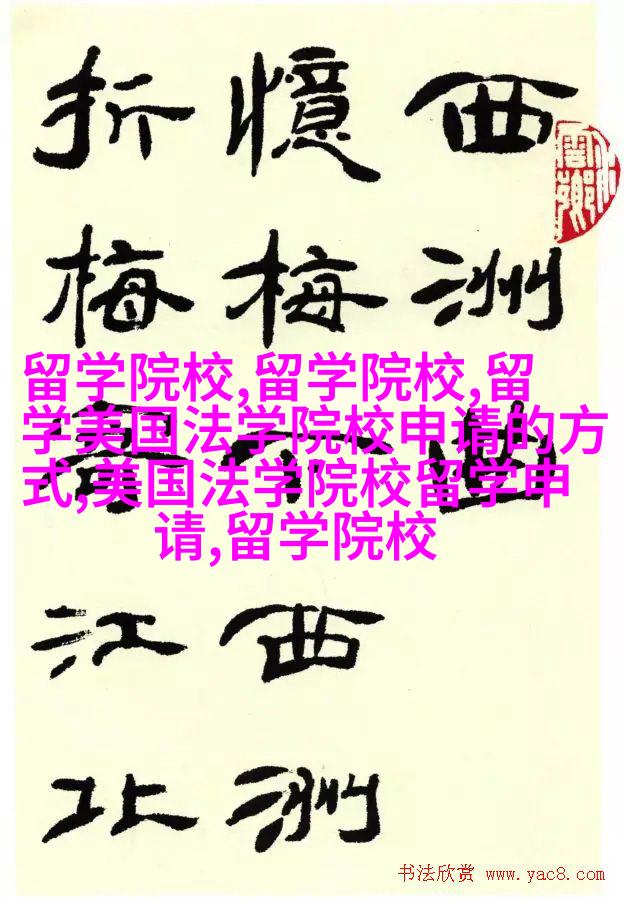 西洲曲
憶梅西洲
折梅江北
留学院校,留学院校,留
学美国法学院校申请的方
式,美国法学院校留学申
请,留学院校
书法欣赏 www.yac8.com